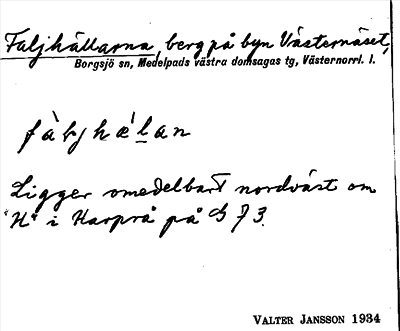 Faljhällarna, berg på byn Västernäset,
Borgsjö sn, Medelpads västra domsagas tg, Västernorrl. l.
Ligger omedelbart nordväst om
"H" i Harprå på G 73.
VALTER JANSSON 1934